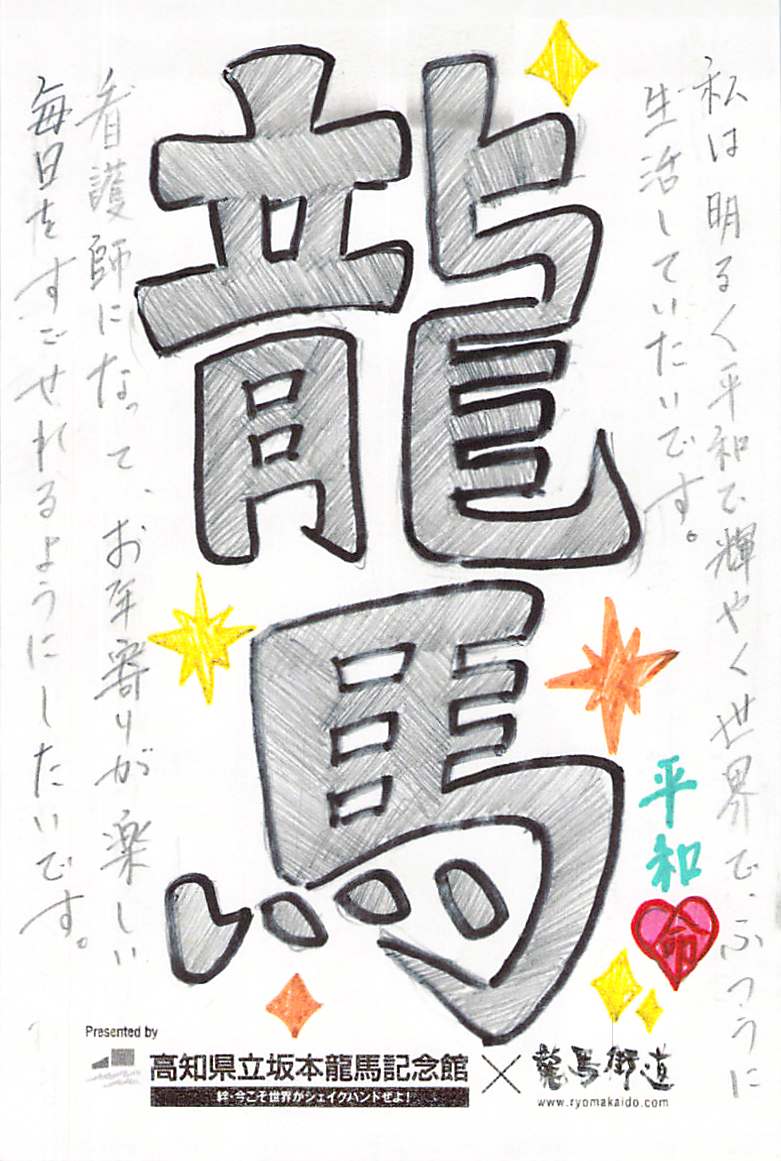 私は明るく平和で輝やく世界で、ふつうに
生活していたいです。
龍馬
看護師になって、お年寄りが楽しい
毎日をすごせれるようにしたいです。
平和
命
Presented by
高知県立坂本龍馬記念館
絆・今こそ世界がシェイクハンドせよ!
×
龍馬街道
www.ryomakaido.com